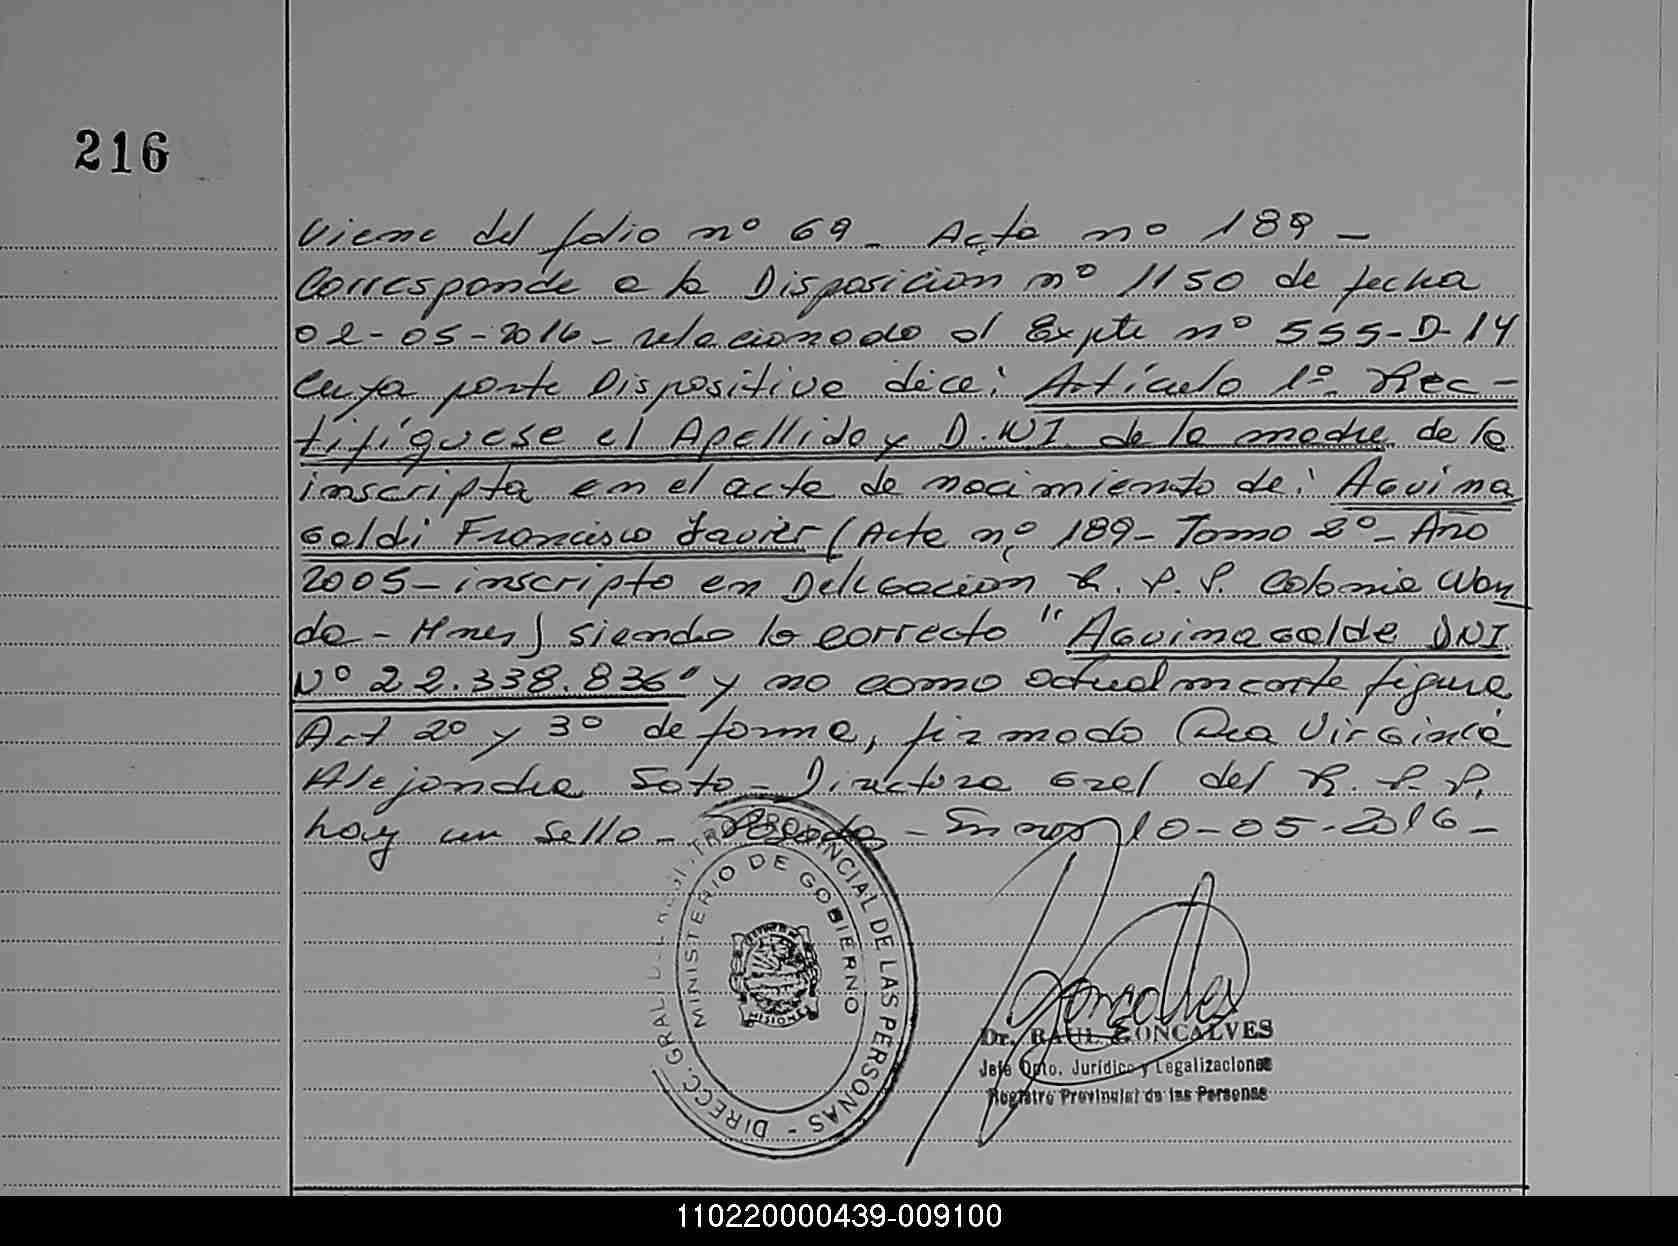 216
Viene del folio nº 69 - Acta nº 189 -
Corresponde a la Disposicion nº 1150 de fecha
02-05-2016 - relacionado al Expte nº 555-D-14
Cuya parte Dispositiva dice: Artículo 1º. Rec-
tifíquese el Apellido y D.N.I. de la madre de la
inscripta en el acta de nacimiento de: Aguina
galdi Francisco Javier (Acta nº 189 - Tomo 2º - Año
2005 - inscripto en Delegacion R. P. P. Colonia Wan
da - Mnes) siendo lo correcto "Aguinagalde DNI
Nº 22.338.836" y no como actualmente figura.
Art 2º y 3º de forma, firmado Dra Virginia
Alejandra Soto - Directora Gral del R. P. P.
hay un sello - - 10-05-2016 -
DIRECC. GRAL. PROVINCIAL DE LAS PERSONAS -
MINISTERIO DE GOBIERNO
MISIONES
Dr. RAUL GONCALVES
Jefe Dpto. Jurídico y Legalizaciones
Registro Provincial de las Personas
110220000439-009100